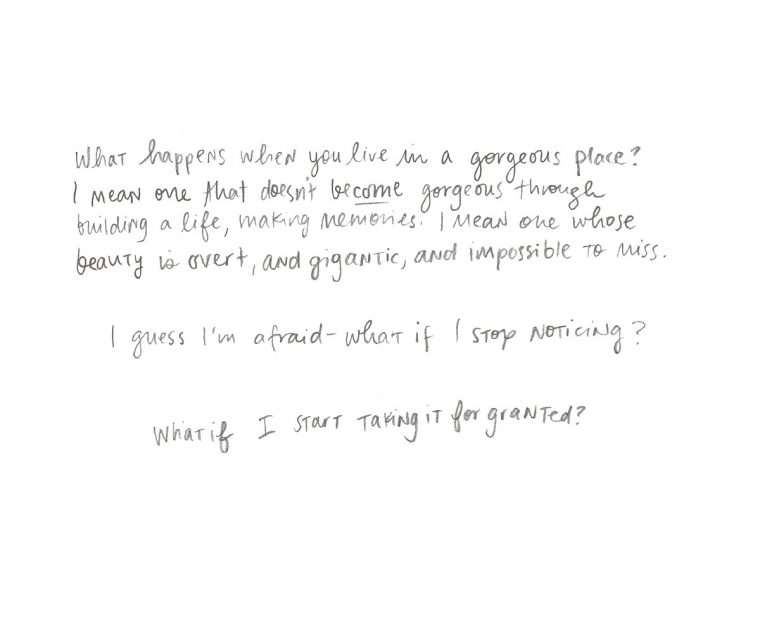 What happens when you live in a gorgeous place?
I mean one that doesn't become gorgeous through
building a life, making memories. I mean one whose
beauty is overt, and gigantic, and impossible to miss.
I guess I'm afraid - what if I stop noticing?
What if I start taking it for granted?